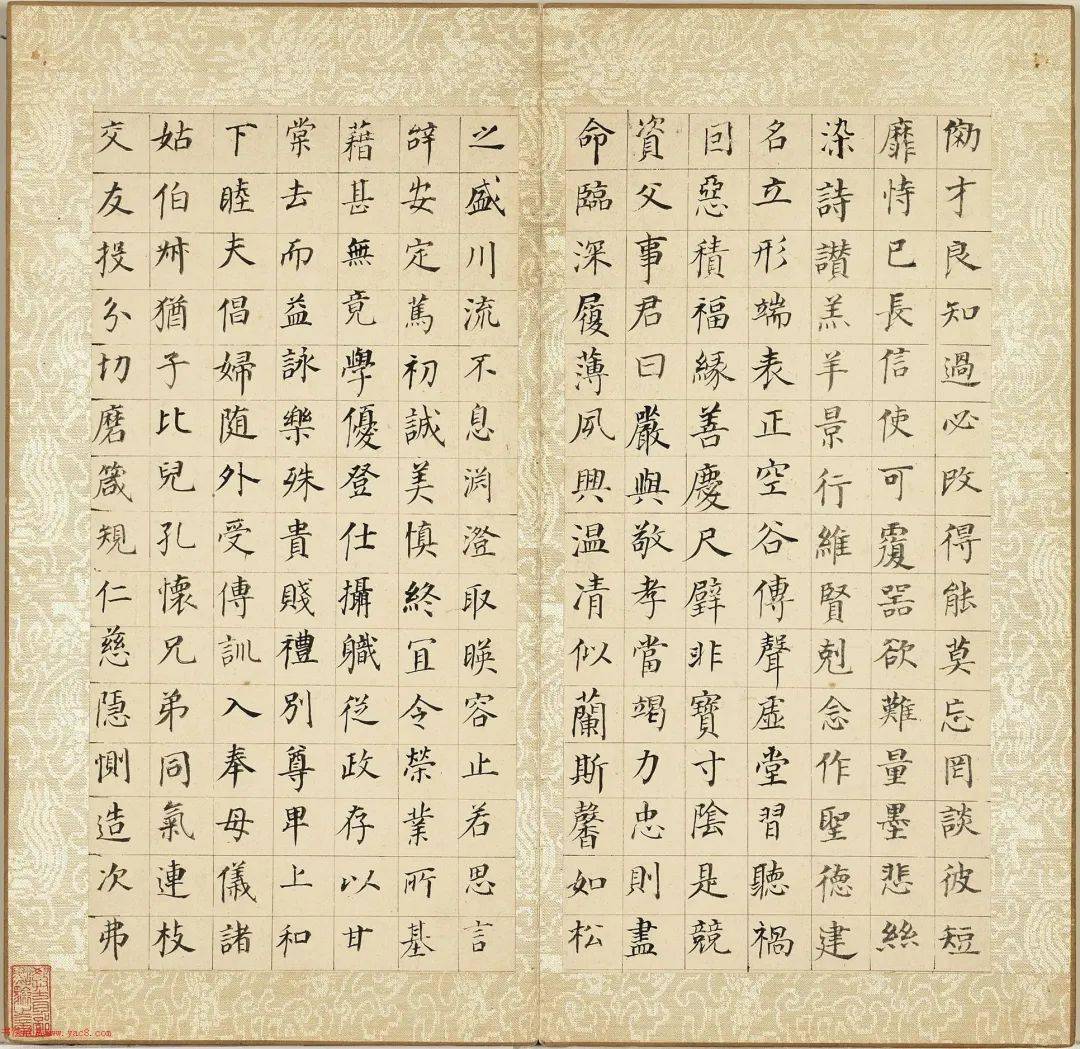 俲才良知過必改得能莫忘罔談彼短
靡恃已長信使可覆器欲難量墨悲絲
染詩讃羔羊景行維賢剋念作聖德建
名立形端表正空谷傳聲虛堂習聽禍
因惡積福緣善慶尺璧非寶寸陰是競
資父事君曰嚴與敬孝當竭力忠則盡
命臨深履薄夙興温凊似蘭斯馨如松
之盛川流不息淵澄取暎容止若思言
辭安定篤初誠美慎終宜令榮業所基
藉甚無竟學優登仕攝職從政存以甘
棠去而益詠樂殊貴賤禮別尊卑上和
下睦夫倡婦随外受傅訓入奉母儀諸
姑伯叔猶子比兒孔懷兄弟同氣連枝
交友投分切磨箴規仁慈隱惻造次弗
www.yac8.com